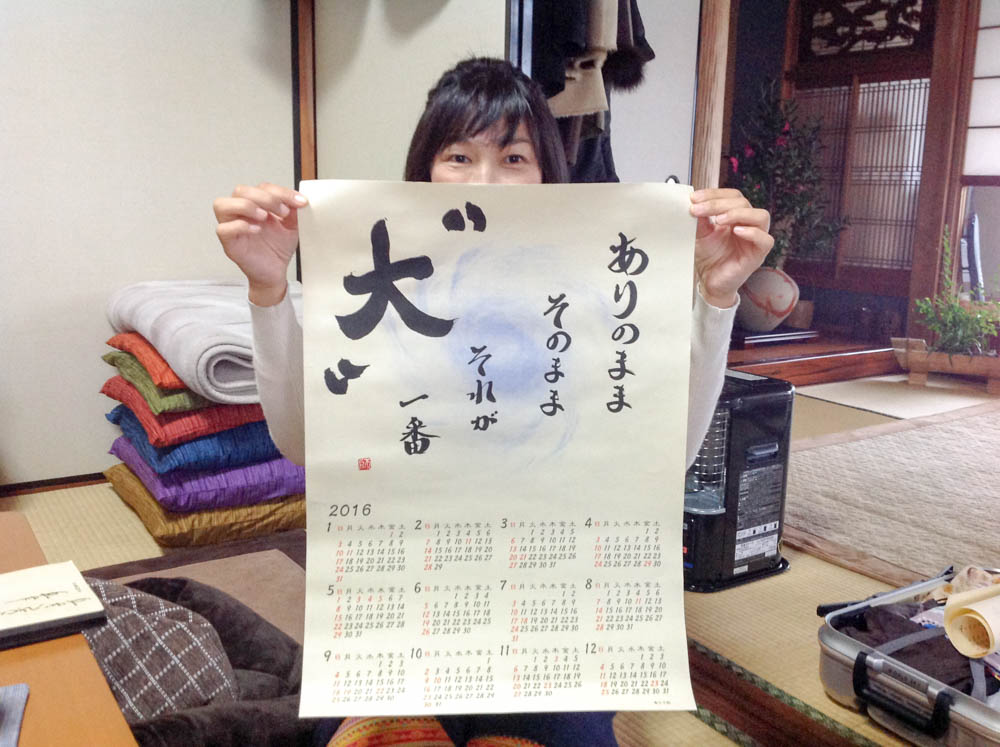 ありのまま
そのまま
それが
一番
〝大〟
2016
1 日 月 火 水 木 金 土
1 2
3 4 5 6 7 8 9
10 11 12 13 14 15 16
17 18 19 20 21 22 23
24 25 26 27 28 29 30
31
2 日 月 火 水 木 金 土
1 2 3 4 5 6
7 8 9 10 11 12 13
14 15 16 17 18 19 20
21 22 23 24 25 26 27
28 29
3 日 月 火 水 木 金 土
1 2 3 4 5
6 7 8 9 10 11 12
13 14 15 16 17 18 19
20 21 22 23 24 25 26
27 28 29 30 31
4 日 月 火 水 木 金 土
1 2
3 4 5 6 7 8 9
10 11 12 13 14 15 16
17 18 19 20 21 22 23
24 25 26 27 28 29 30
5 日 月 火 水 木 金 土
1 2 3 4 5 6 7
8 9 10 11 12 13 14
15 16 17 18 19 20 21
22 23 24 25 26 27 28
29 30 31
6 日 月 火 水 木 金 土
1 2 3 4
5 6 7 8 9 10 11
12 13 14 15 16 17 18
19 20 21 22 23 24 25
26 27 28 29 30
7 日 月 火 水 木 金 土
1 2
3 4 5 6 7 8 9
10 11 12 13 14 15 16
17 18 19 20 21 22 23
24 25 26 27 28 29 30
31
8 日 月 火 水 木 金 土
1 2 3 4 5 6
7 8 9 10 11 12 13
14 15 16 17 18 19 20
21 22 23 24 25 26 27
28 29 30 31
9 日 月 火 水 木 金 土
1 2 3
4 5 6 7 8 9 10
11 12 13 14 15 16 17
18 19 20 21 22 23 24
25 26 27 28 29 30
10 日 月 火 水 木 金 土
1
2 3 4 5 6 7 8
9 10 11 12 13 14 15
16 17 18 19 20 21 22
23 24 25 26 27 28 29
30 31
11 日 月 火 水 木 金 土
1 2 3 4 5
6 7 8 9 10 11 12
13 14 15 16 17 18 19
20 21 22 23 24 25 26
27 28 29 30
12 日 月 火 水 木 金 土
1 2 3
4 5 6 7 8 9 10
11 12 13 14 15 16 17
18 19 20 21 22 23 24
25 26 27 28 29 30 31